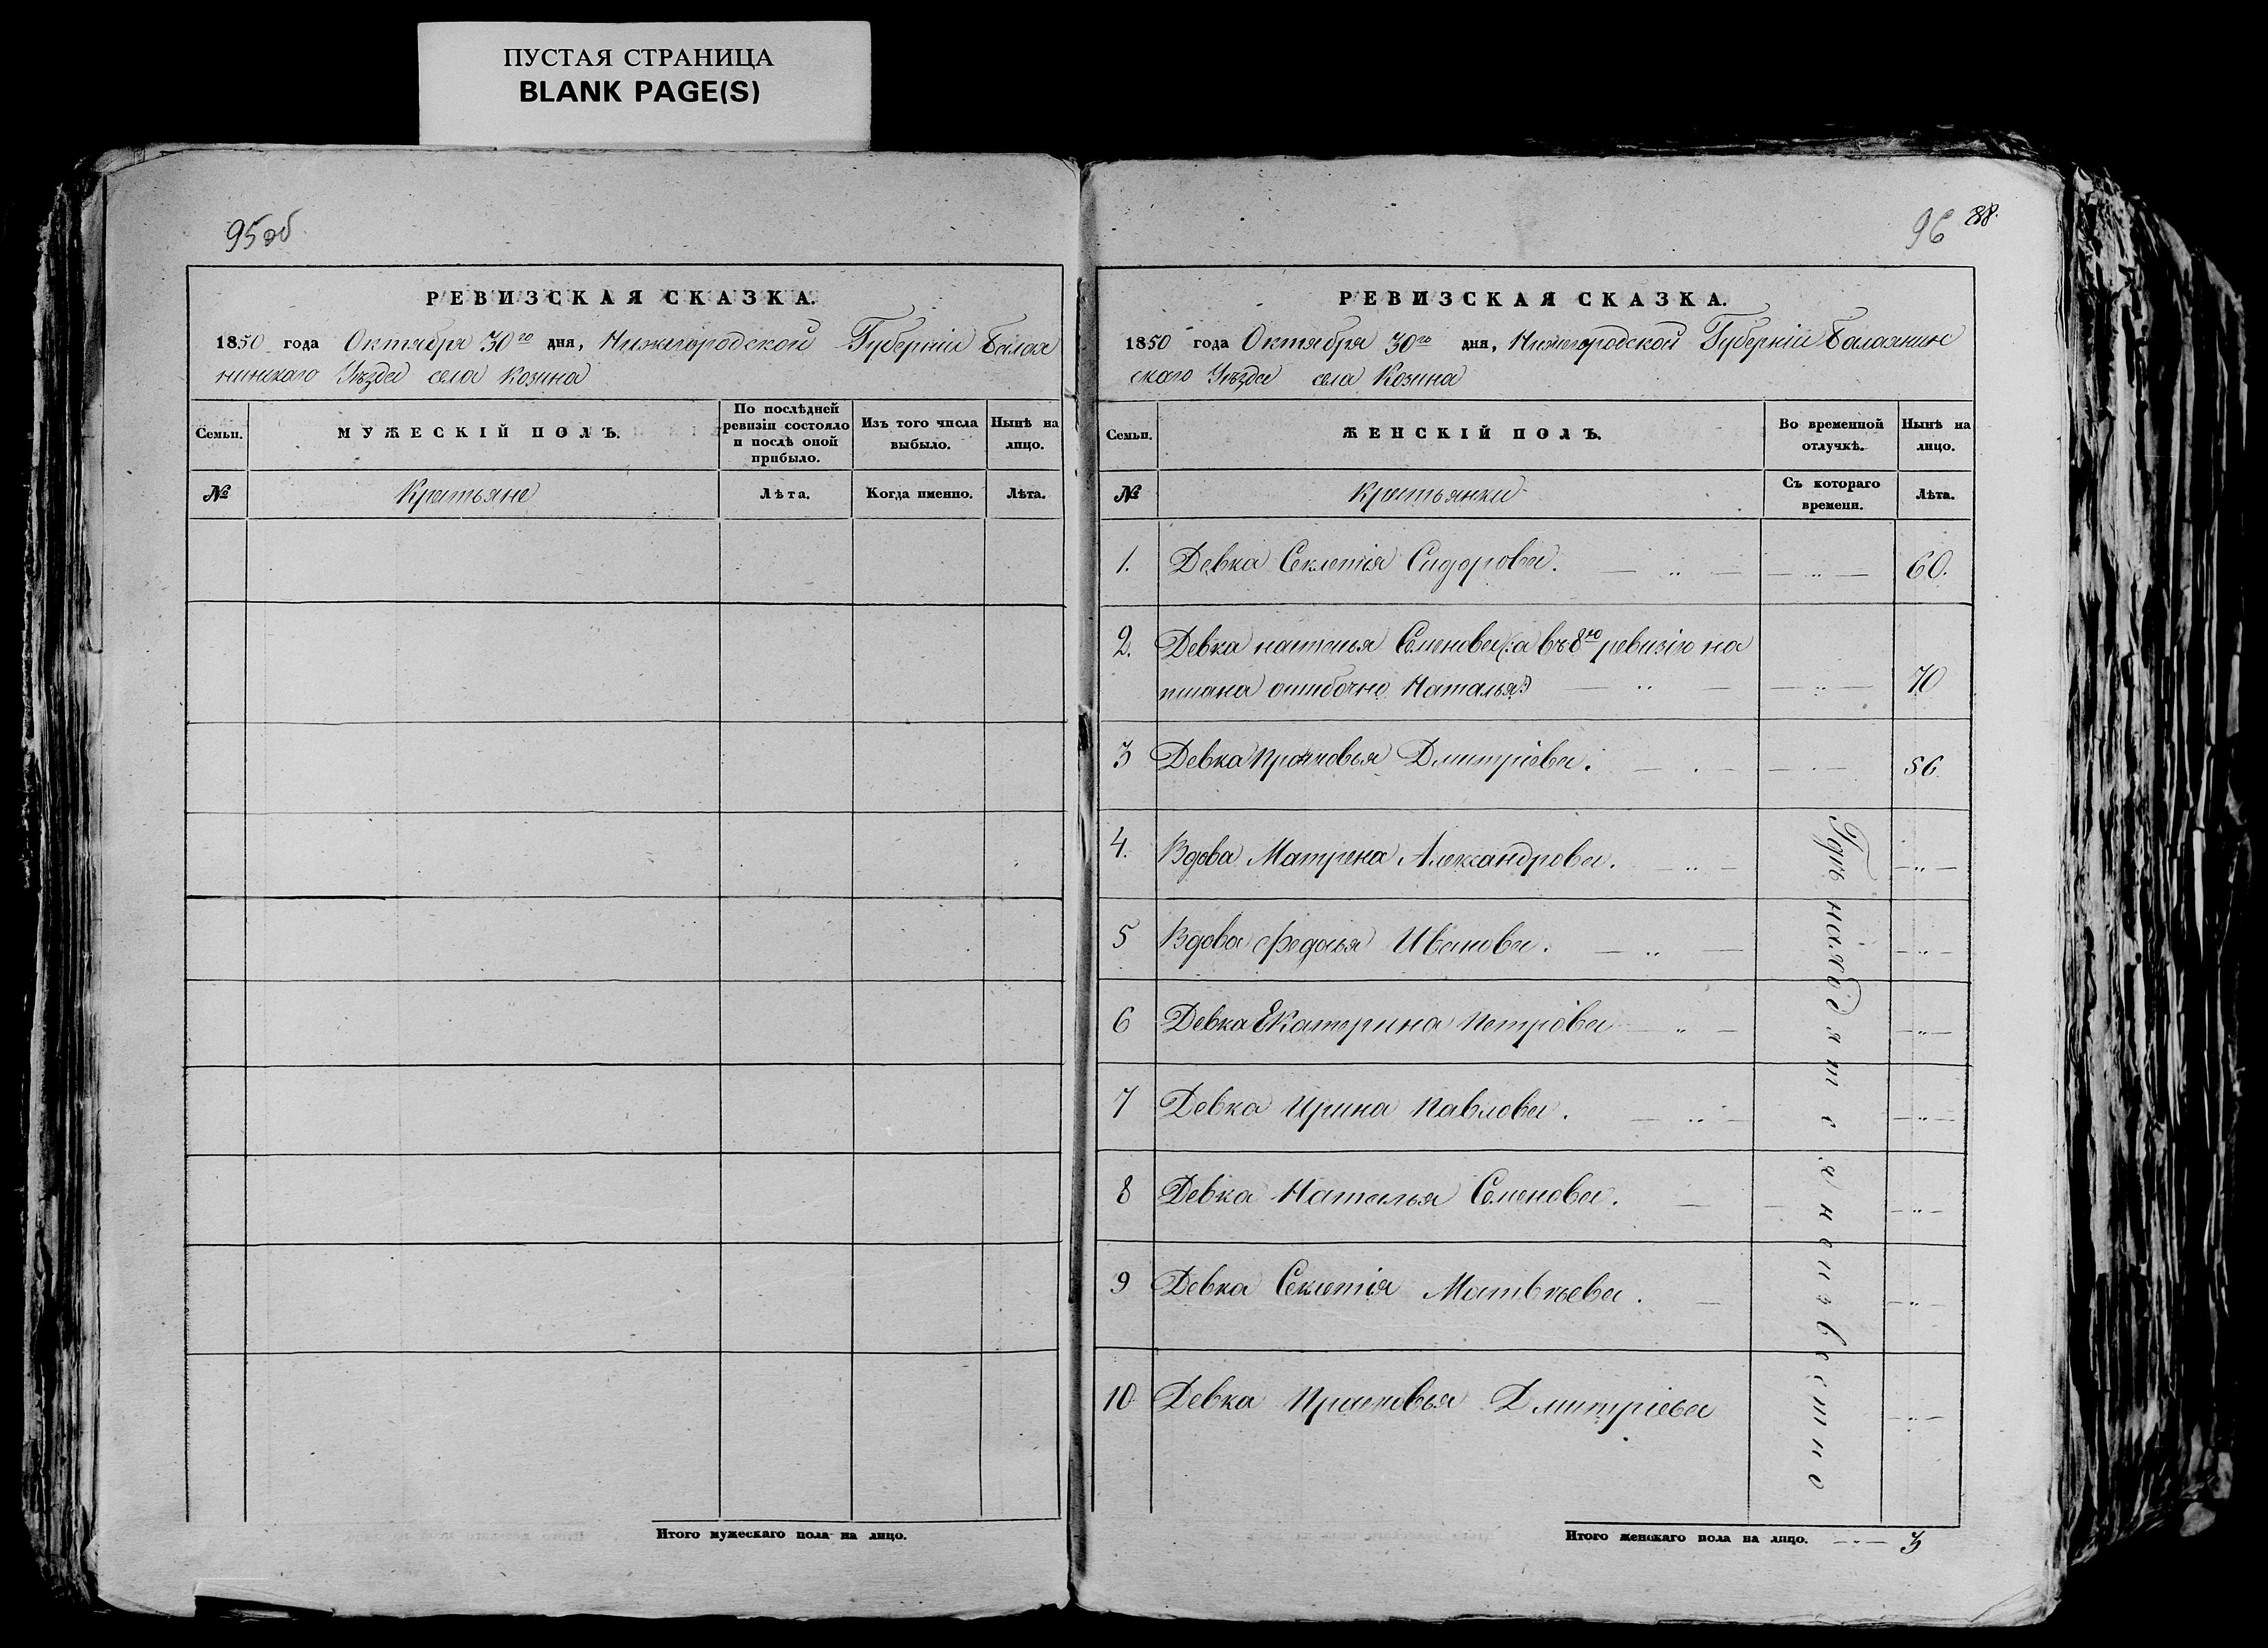 ПУСТАЯ СТРАНИЦА
BLANK PAGE(S)
95 об
РЕВИЗСКАЯ СКАЗКА.
1850 года Октября 30го дня, Нижегородской Губерніи Балах
нинскаго Уѣзда села Козина
Семьи.
МУЖЕСКІЙ ПОЛЪ.
По послѣдней
ревизіи состояло
и послѣ оной
прибыло.
Изъ того числа
выбыло.
Нынѣ на
лицо.
№
Крестьяне
Лѣта.
Когда именно.
Лѣта.
Итого мужескаго пола на лицо.
96 88.
РЕВИЗСКАЯ СКАЗКА.
1850 года Октября 30го дня, Нижегородской Губерніи Балахнин
скаго Уѣзда села Козина
Семьи.
ЖЕНСКІЙ ПОЛЪ.
Во временной
отлучкѣ.
Нынѣ на
лицо.
№
Крестьянки
Съ котораго
времени.
Лѣта.
1. Девка Секлетія Сидорова. — „ — — „ — 60.
2. Девка Семенова (:а въ 8ю ревизію на
писана ошибочно Наталья:) — „ — — „ — 70
3 Девка Прасковья Дмитріева. — . — — . — 56.
4. Вдова Матрена Александрова. — „ — — „ —
5 Вдова Федосья Иванова. — „ — — „ —
6 Девка Екатерина Петрова — „ — — „ —
7 Девка Ирина Павлова. — „ — — „ —
8 Девка Наталья Семенова. — — — „ —
9 Девка Секлетія Матвѣева. — — „ —
10 Девка Прасковья Дмитріева — „ —
Гдѣ находятся неизвестно
Итого женскаго пола на лицо. — „ — 3